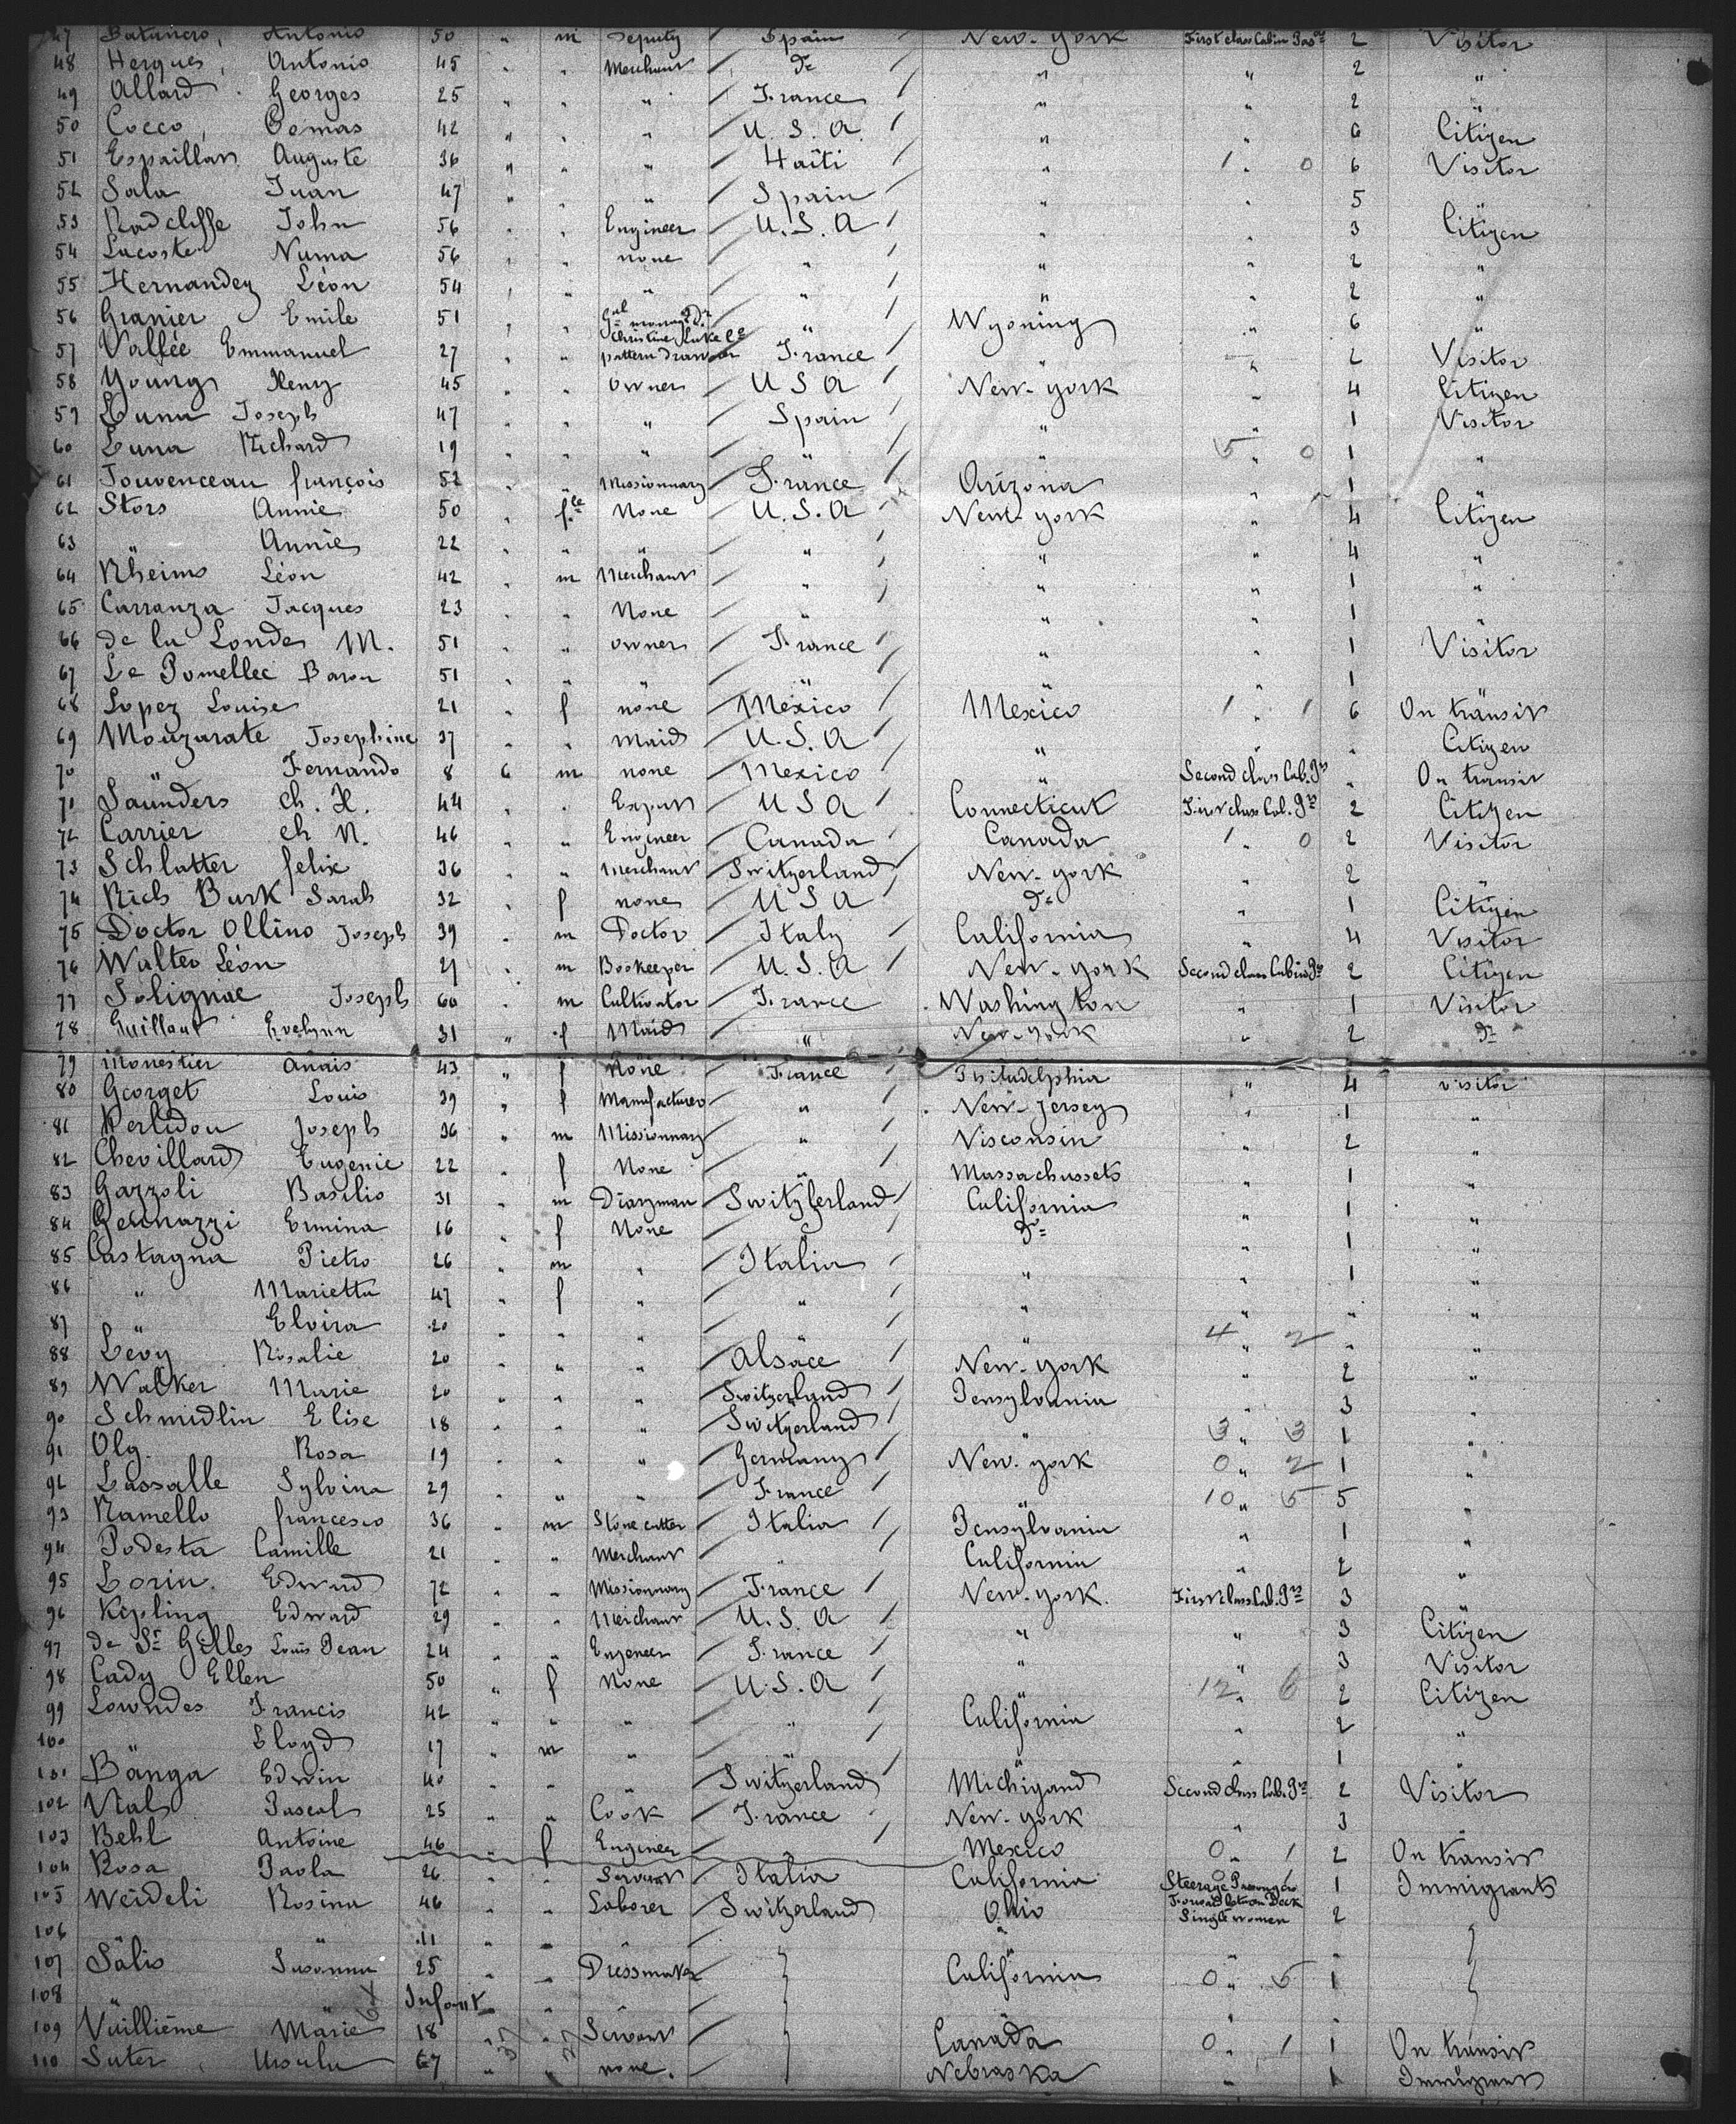 47 Batanero, Antonio 50 " m Deputy Spain New-York First class Cabin Pas 2 Visitor
48 Herques, Antonio 45 " " Merchant do " " 2 "
49 Allard Georges 25 " " " France " " 2 "
50 Cocco, Comas 42 " " " U.S.A " " 6 Citizen
51 Espaillan Auguste 36 " " " Haïti " 1 " 0 6 Visitor
52 Sala Juan 47 " " " Spain " " 5 "
53 Radcliffe John 56 " " Engineer U.S.A " " 3 Citizen
54 Lacoste Numa 56 " " none " " " 2 "
55 Hernandez Léon 54 " " " " " " 2 "
56 Granier Emile 51 " " " Wyoning " 6 "
57 Vallée Emmanuel 27 " " pattern drawer France " " 2 Visitor
58 Young Heny 45 " " owner U S A New-York " 4 Citizen
59 Luna Joseph 47 " " " Spain " " 1 Visitor
60 Luna Richard 19 " " " " " 5 " 0 1 "
61 Jouvenceau françois 52 " " Missionnary France Arizona " 1 "
62 Stors Annie 50 " fle None U.S.A New-York " 4 Citizen
63 " Annie 22 " " " " " " 4 "
64 Rheims Léon 42 " m Merchant " " " 1 "
65 Carranza Jacques 23 " " None " " " 1 "
66 de la Londe M. 51 " " owner France " " 1 Visitor
67 Le Pomellec Baron 51 " " " " " " 1 "
68 Lopez Louise 21 " f none Mexico Mexico 1 " 1 6 On transit
69 Mouzarate Josephine 37 " " Maid U.S.A " " " Citizen
70 " Fernando 8 6 m none Mexico " Second class Cab. Prs " On transit
71 Saunders Ch. H. 44 " " Expert U S A Connecticut First class Cab. Prs 2 Citizen
72 Carrier Ch N. 46 " " Engineer Canada Canada 1 " 0 2 Visitor
73 Schlatter felix 36 " " Merchant Switzerland New-York " 2 "
74 Rich Burk Sarah 32 " f none U S A do " 1 Citizen
75 Doctor Ollino Joseph 39 " m Doctor Italy California " 4 Visitor
76 Walter Léon 27 " m Bookeeper U.S.A New-York Second class Cabin Prs 2 Citizen
77 Solignac Joseph 60 " m Cultivator France Washington " 1 Visitor
78 Guillaut Evelynn 31 " f Maid " New-York " 2 do
79 Monestier Anaïs 43 " f None France Philadelphia " 4 visitor
80 Georget Louis 39 " f Manufacturer " New-Jersey " 1 "
81 Kerlidou Joseph 36 " m Missionnary " Visconsin " 2 "
82 Chevillard Eugenie 22 " f None " Massachussets " 1 "
83 Gazzoli Basilio 31 " m Diaryman Switzerland California " 1 "
84 Gennazzi Ermina 16 " f None " do " 1 "
85 Castagna Pietro 26 " m " Italia " " 1 "
86 " Marietta 47 " f " " " " " "
87 " Elvira 20 " " " " " 4 " 2 " "
88 Levy Rosalie 20 " " " Alsace New-York " 2 "
89 Walker Marie 20 " " " Switzerland Pensylvania " 3 "
90 Schmidlin Elise 18 " " " Switzerland " 3 " 3 1 "
91 Olg Rosa 19 " " " Germany New-York 0 " 2 1 "
92 Lassalle Sylvina 29 " " " France " 10 " 5 5 "
93 Ramello francesco 36 " m Stone cutter Italia Pensylvania " 1 "
94 Podesta Camille 21 " " Merchant " California " 2 "
95 Lorin Edward 72 " " Missionnary France New-York. First class Cab. Prs 3 "
96 Kipling Edward 29 " " Merchant U.S.A " " 3 Citizen
97 de St Gilles Louis Jean 24 " " Engeneer France " " 3 Visitor
98 Cady Ellen 50 " f None U.S.A " 12 " 6 2 Citizen
99 Lowndes Francis 42 " " " " California " 2 "
100 " Lloyd 17 " m " " " " 1 "
101 Bänga Edwin 40 " " " Switzerland Michigand Second class Cab. Prs 2 Visitor
102 Vial Pascal 25 " " Cook France New-York " 3 "
103 Behl Antoine 46 " f Engineer " Mexico 0 " 1 2 On transit
104 Rosa Paola 26 " " Servant Italia California Steerage Passengers 1 Immigrants
105 Weideli Rosina 46 " " Laborer Switzerland Ohio Forward between Deck Single women 2
106 " " 11 " " " " "
107 Salis Susanna 25 " " Dressmaker California 0 " 5 1
108 " Infant " "
109 Vuillième Marie 18 " " Servant Canada 0 " 1 1 On transit
110 Suter, Ursula 67 " " none. Nebraska " 1 Immigrant